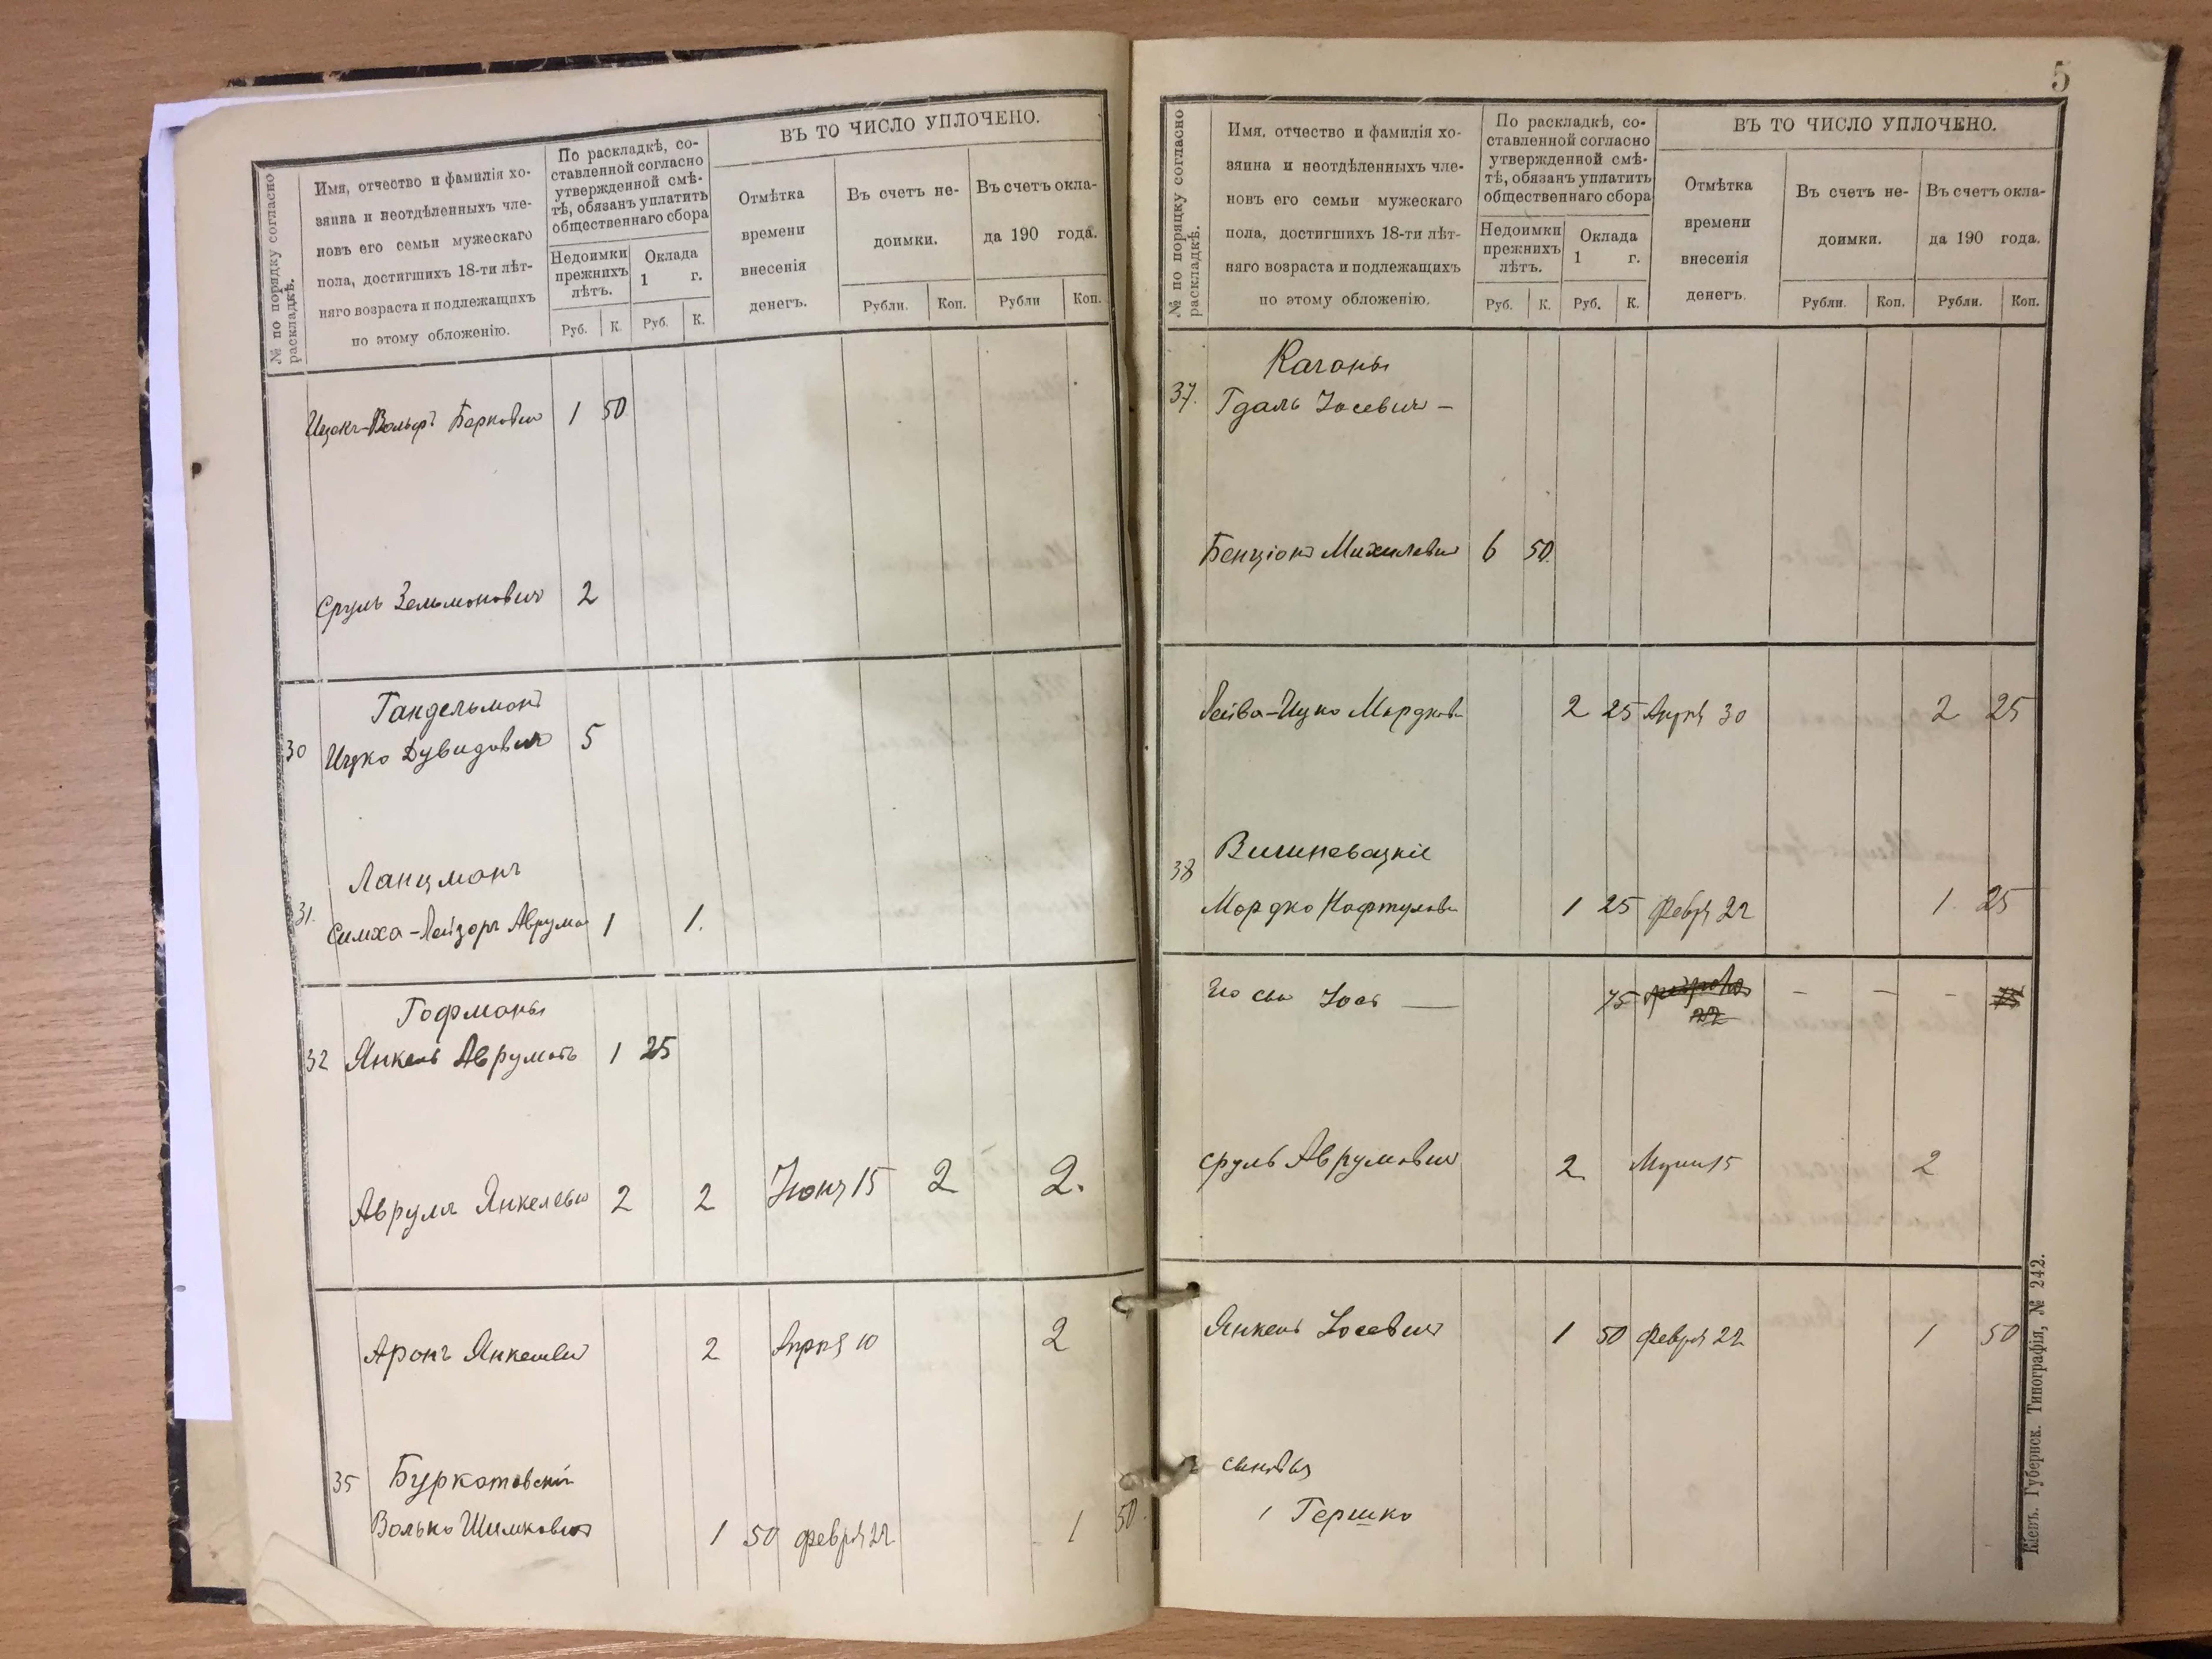 № по порядку согласно
раскладкѣ.
Имя, отчество и фамилія хо-
зяина и неотдѣленныхъ чле-
новъ его семьи мужескаго
пола, достигшихъ 18-ти лѣт-
няго возраста и подлежащихъ
по этому обложенію.
По раскладкѣ, со-
ставленной согласно
утвержденной смѣ-
тѣ, обязанъ уплатить
общественнаго сбора
Недоимки
прежнихъ
лѣтъ.
Оклада
1 г.
Руб. К. Руб. К.
ВЪ ТО ЧИСЛО УПЛОЧЕНО.
Отмѣтка
времени
внесенія
денегъ.
Въ счетъ не-
доимки.
Въ счетъ окла-
да 190 года.
Рубли. Коп. Рубли Коп.
Ицекъ-Вольфъ Беркович 1 50
Сруль Зельманович 2
Гандельманъ
30 Ицко Дувидович 5
Ланцманъ
31. Симха-Лейзоръ Аврумо 1 1.
Гофманы
32 Янкель Аврумовъ 1 25
Аврумъ Янкелевич 2 2 Іюня 15 2 2.
Аронъ Янкелевич 2 Апрѣл 10 2
35 Буркатовскій
Волько Шимкович 1 50 февр 22 1 50
5
№ по порядку согласно
раскладкѣ.
Имя, отчество и фамилія хо-
зяина и неотдѣленныхъ чле-
новъ его семьи мужескаго
пола, достигшихъ 18-ти лѣт-
няго возраста и подлежащихъ
по этому обложенію.
По раскладкѣ, со-
ставленной согласно
утвержденной смѣ-
тѣ, обязанъ уплатить
общественнаго сбора
Недоимки
прежнихъ
лѣтъ.
Оклада
1 г.
Руб. К. Руб. К.
ВЪ ТО ЧИСЛО УПЛОЧЕНО.
Отмѣтка
времени
внесенія
денегъ.
Въ счетъ не-
доимки.
Въ счетъ окла-
да 190 года.
Рубли. Коп. Рубли. Коп.
Кагоны
37. Гдаль Іосевич –
Бенціонъ Михилевич 6 50.
Лейба-Ицко Мордков 2 25 Апрѣл 30 2 25
Вишневацкіе
38 Мордко Нафтулов 1 25 февр 22 1. 25
Его сын Іось — 75 22 – – – 75
Сруль Аврумович 2 15 2
Янкель Іосевич 1 50 февр 22 1 50
сыновья
1 Гершко
Кіевъ. Губернск. Типографія, № 242.